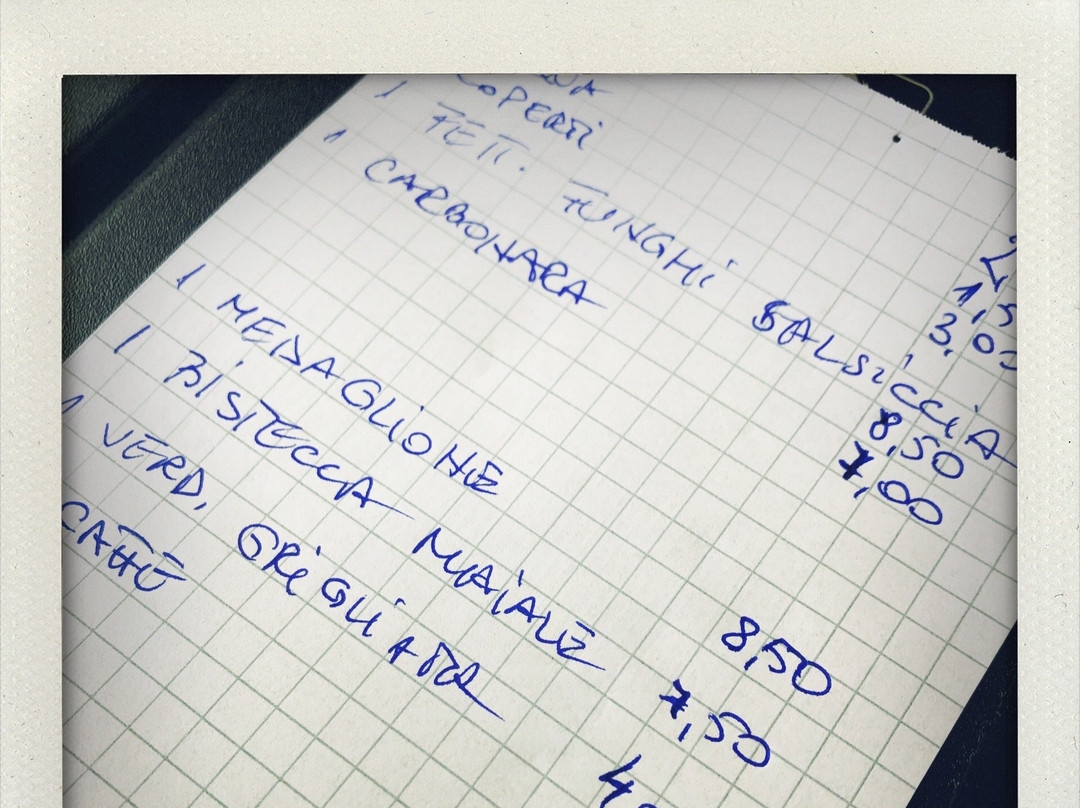 COPERTI 1,5
1 FETT. FUNGHI SALSICCIA 8,50
1 CARBONARA 7,00
1 MEDAGLIONE 8,50
1 BISTECCA MAIALE 7,50
1 VERD. GRIGLIATA 4
CAFFÈ